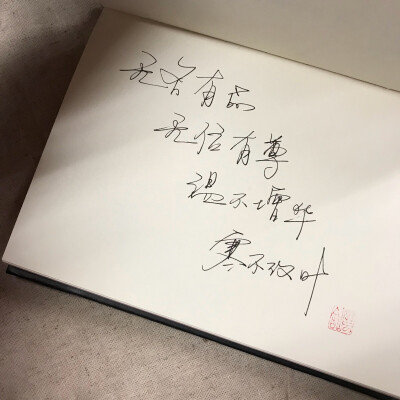 无名有品
无位有尊
温不增华
寒不改叶